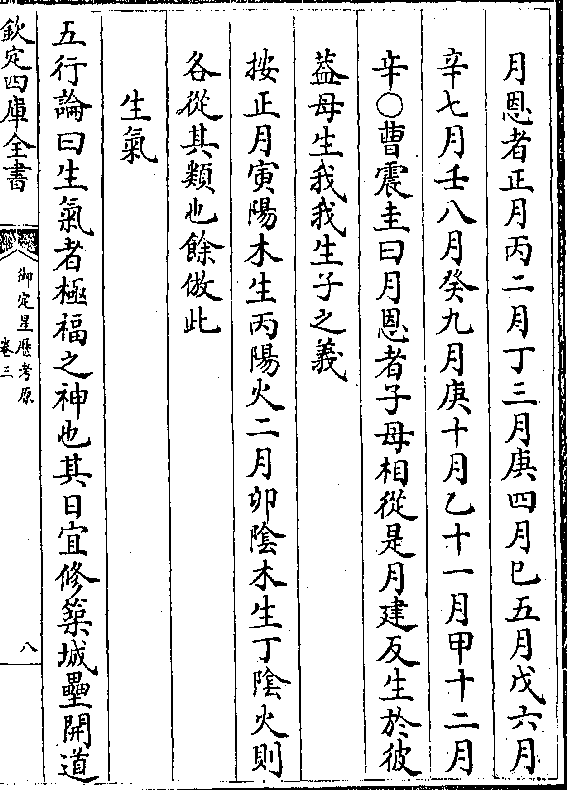 月恩者正月丙二月丁三月庚四月巳五月戊六月
辛七月壬八月癸九月庚十月乙十一月甲十二月
辛○曹震圭曰月恩者子母相從是月建反生於彼
葢母生我我生子之義
按正月寅陽木生丙陽火二月卯陰木生丁陰火則
各從其類也餘倣此
生氣
五行論曰生氣者極福之神也其日宜修築城壘開道
欽定四庫全書
御定星歷考原
卷三
八